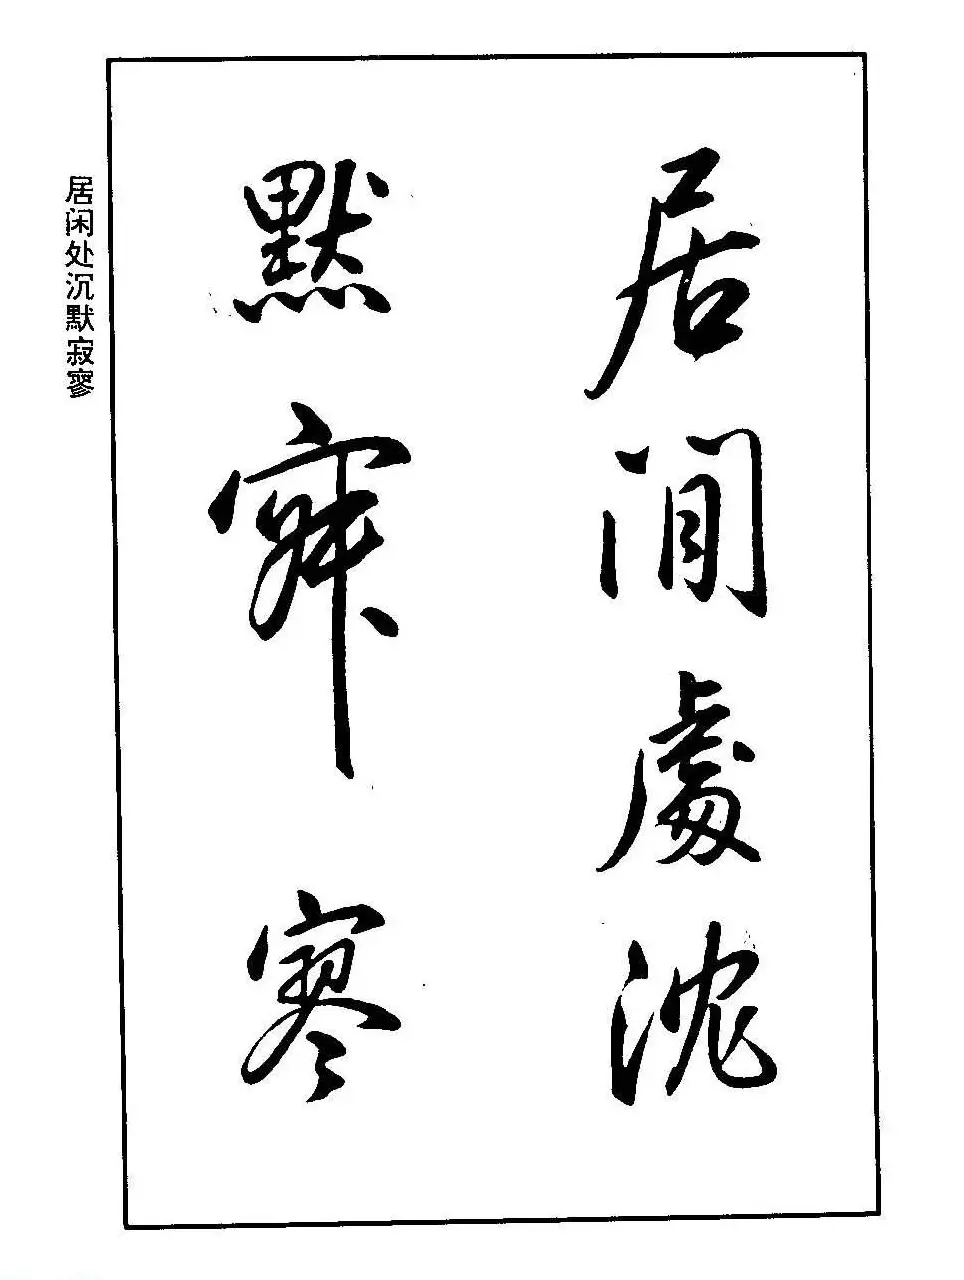 居閒處沈
默寂寥
居闲处沉默寂寥